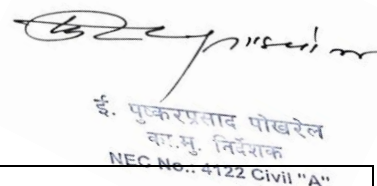 ई. पुष्करप्रसाद पोखरेल
का.मु. निर्देशक
NEC No.: 4122 Civil "A"